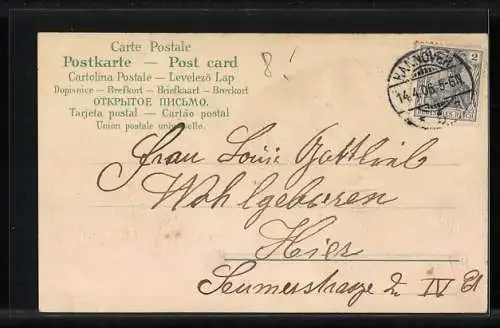 Carte Postale
Postkarte — Post card
Cartolina Postale — Levelező Lap
Dopisnice — Brefkort — Briefkaart — Brevkort
ОТКРЫТОЕ ПИСЬМО.
Tarjeta postal — Cartão postal
Union postale universelle.
8!
HANNOVER
14.4.06. 5-6N
2
Frau Louis Gottlieb
Wohlgeboren
Hier
Seumerstrasse 2 IV Et